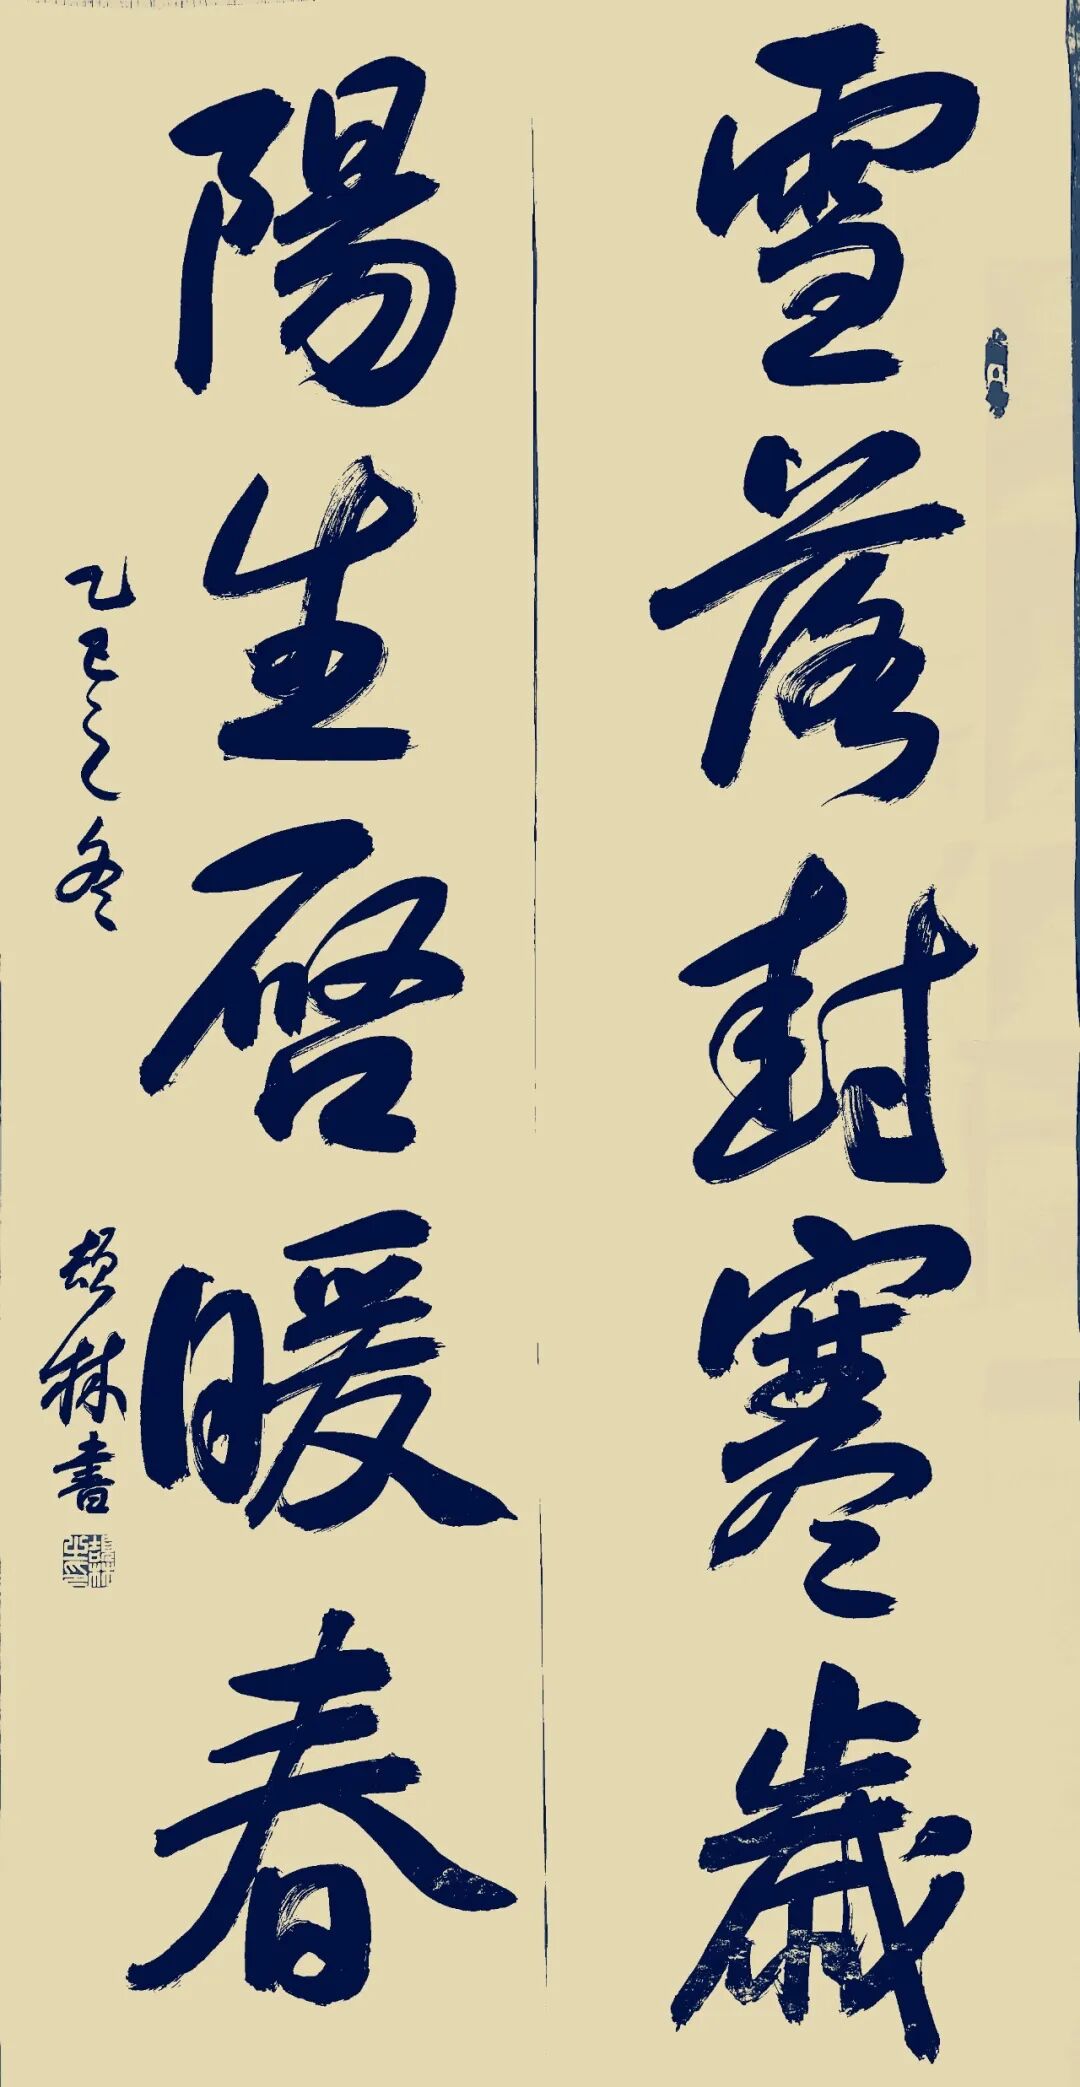 雪落封寒歲
陽生啓暖春
乙巳之冬
林書